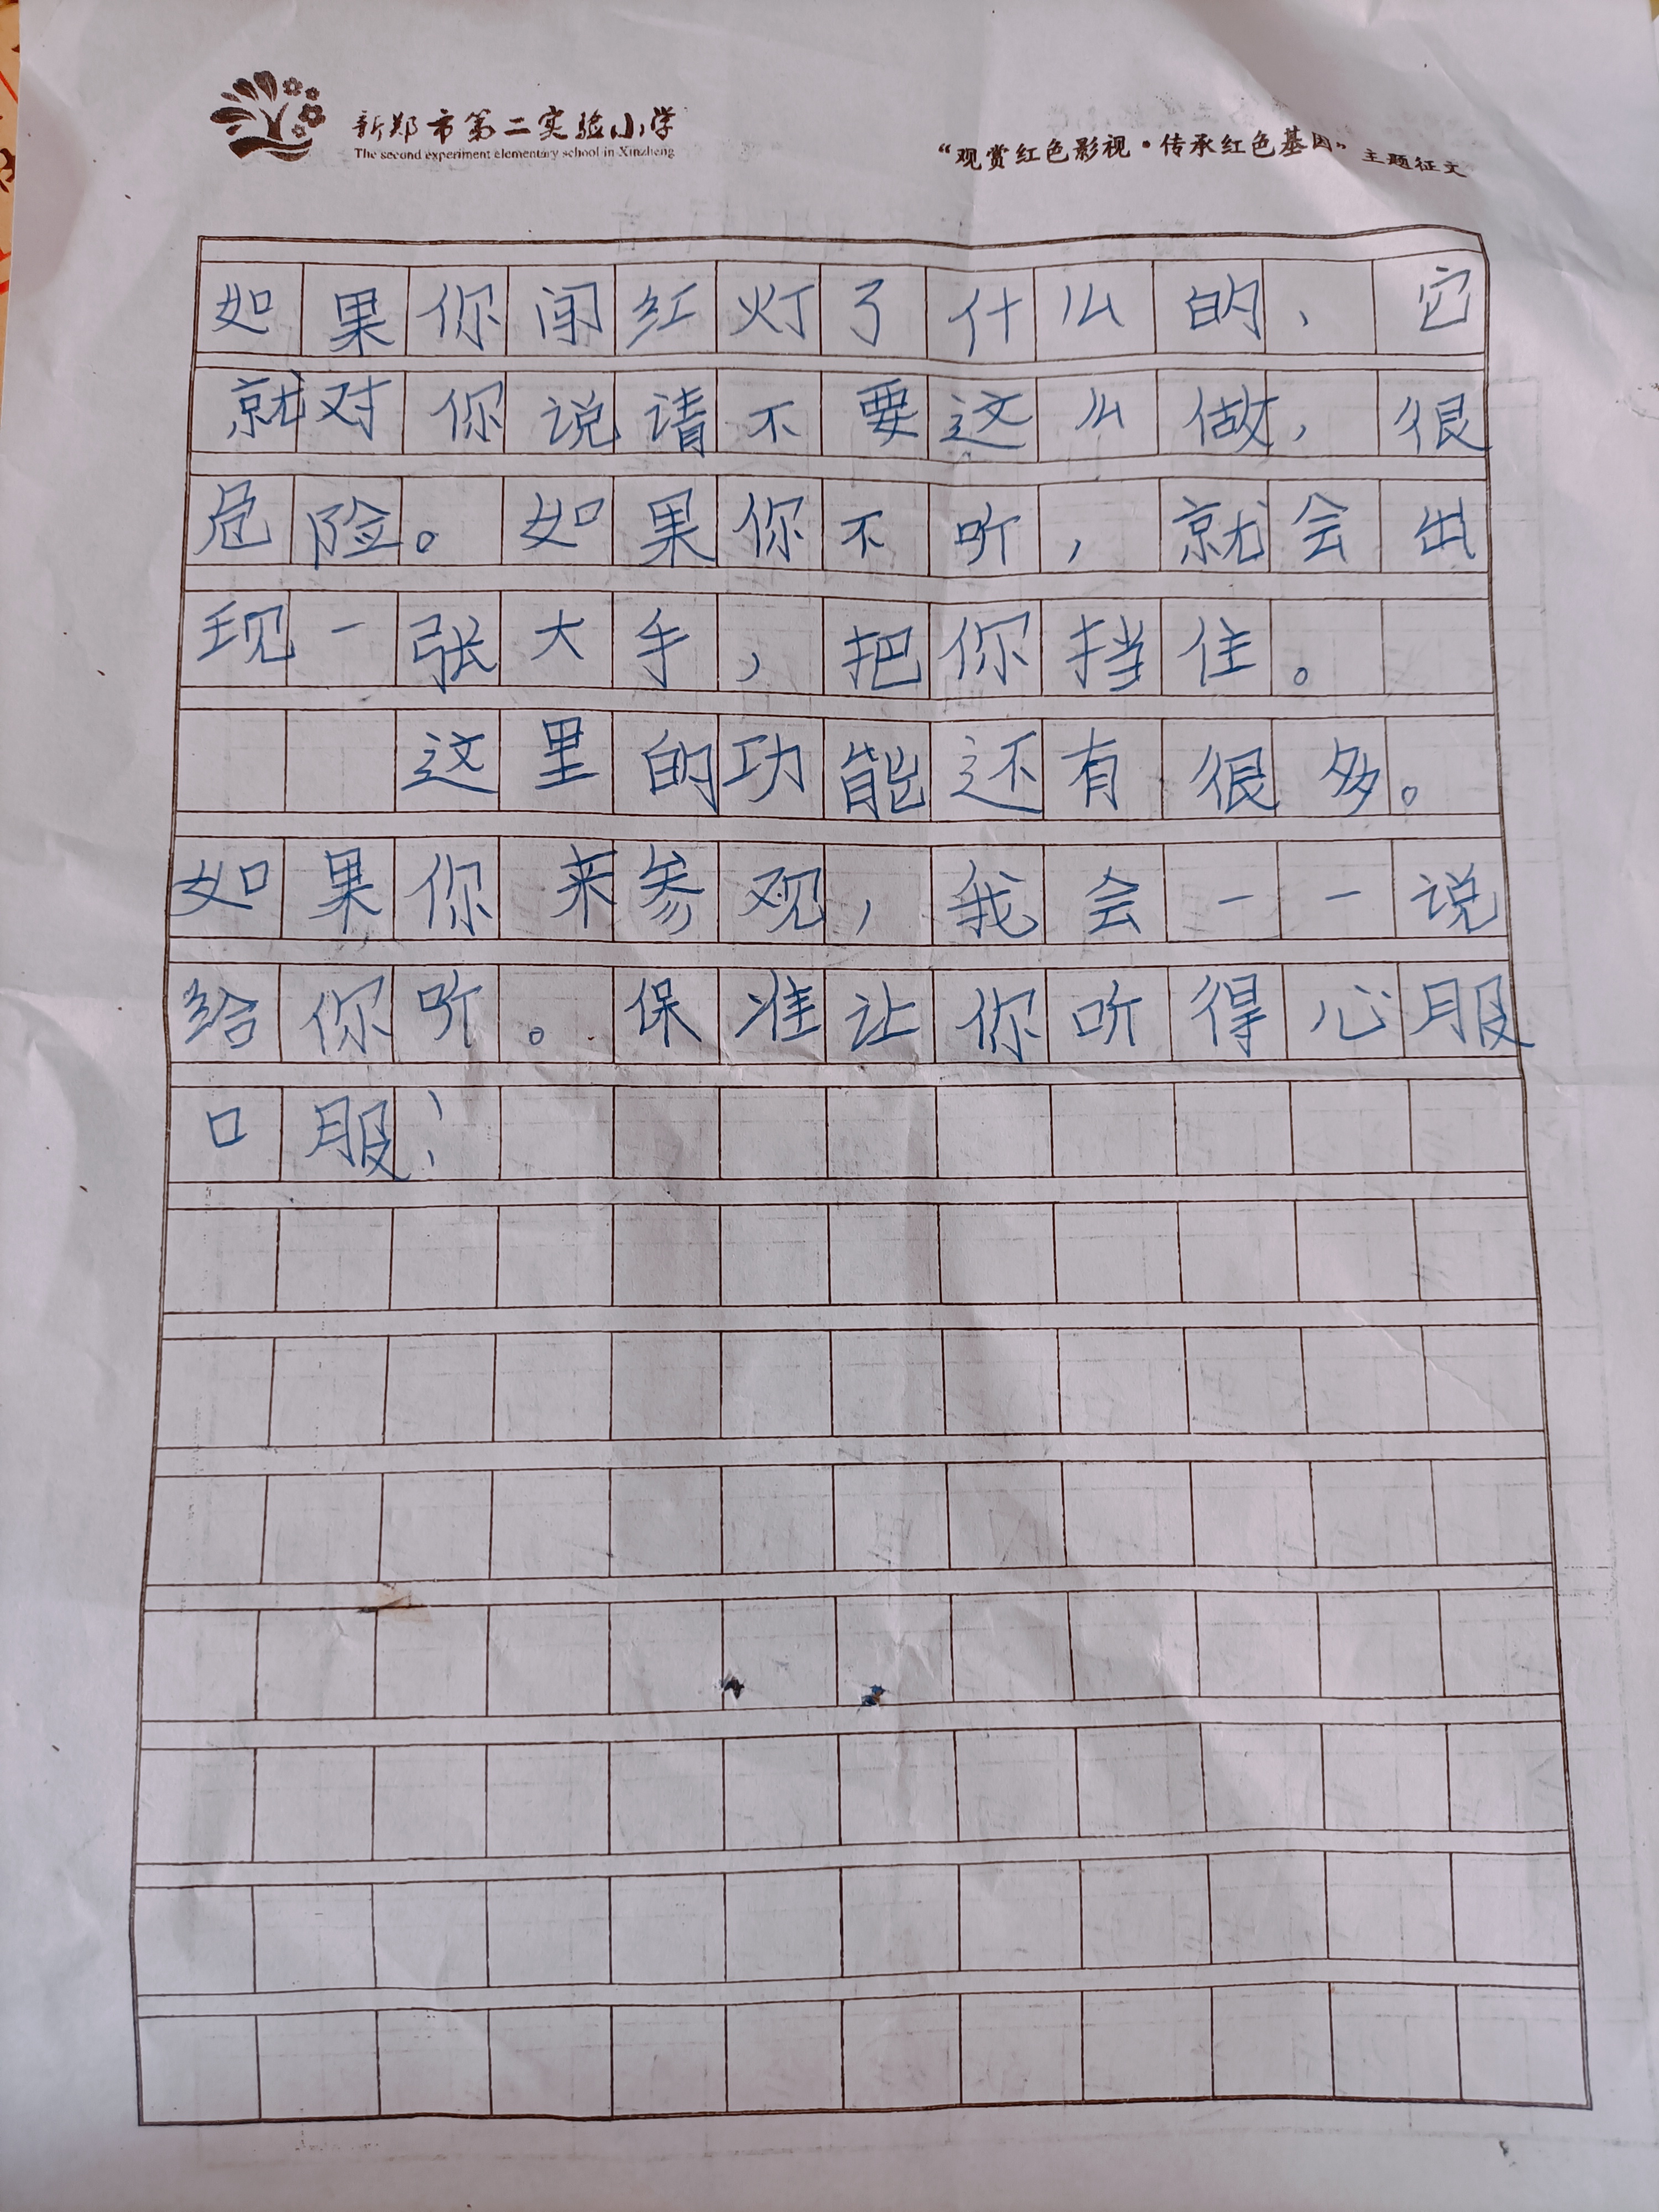 新郑市第二实验小学
The second experiment elementary school in Xinzheng
“观赏红色影视·传承红色基因”主题征文
如果你闯红灯了什么的,它
就对你说请不要这么做,很
危险。如果你不听,就会出
现一张大手,把你挡住。
这里的功能还有很多。
如果你来参观,我会一一说
给你听。保准让你听得心服
口服!